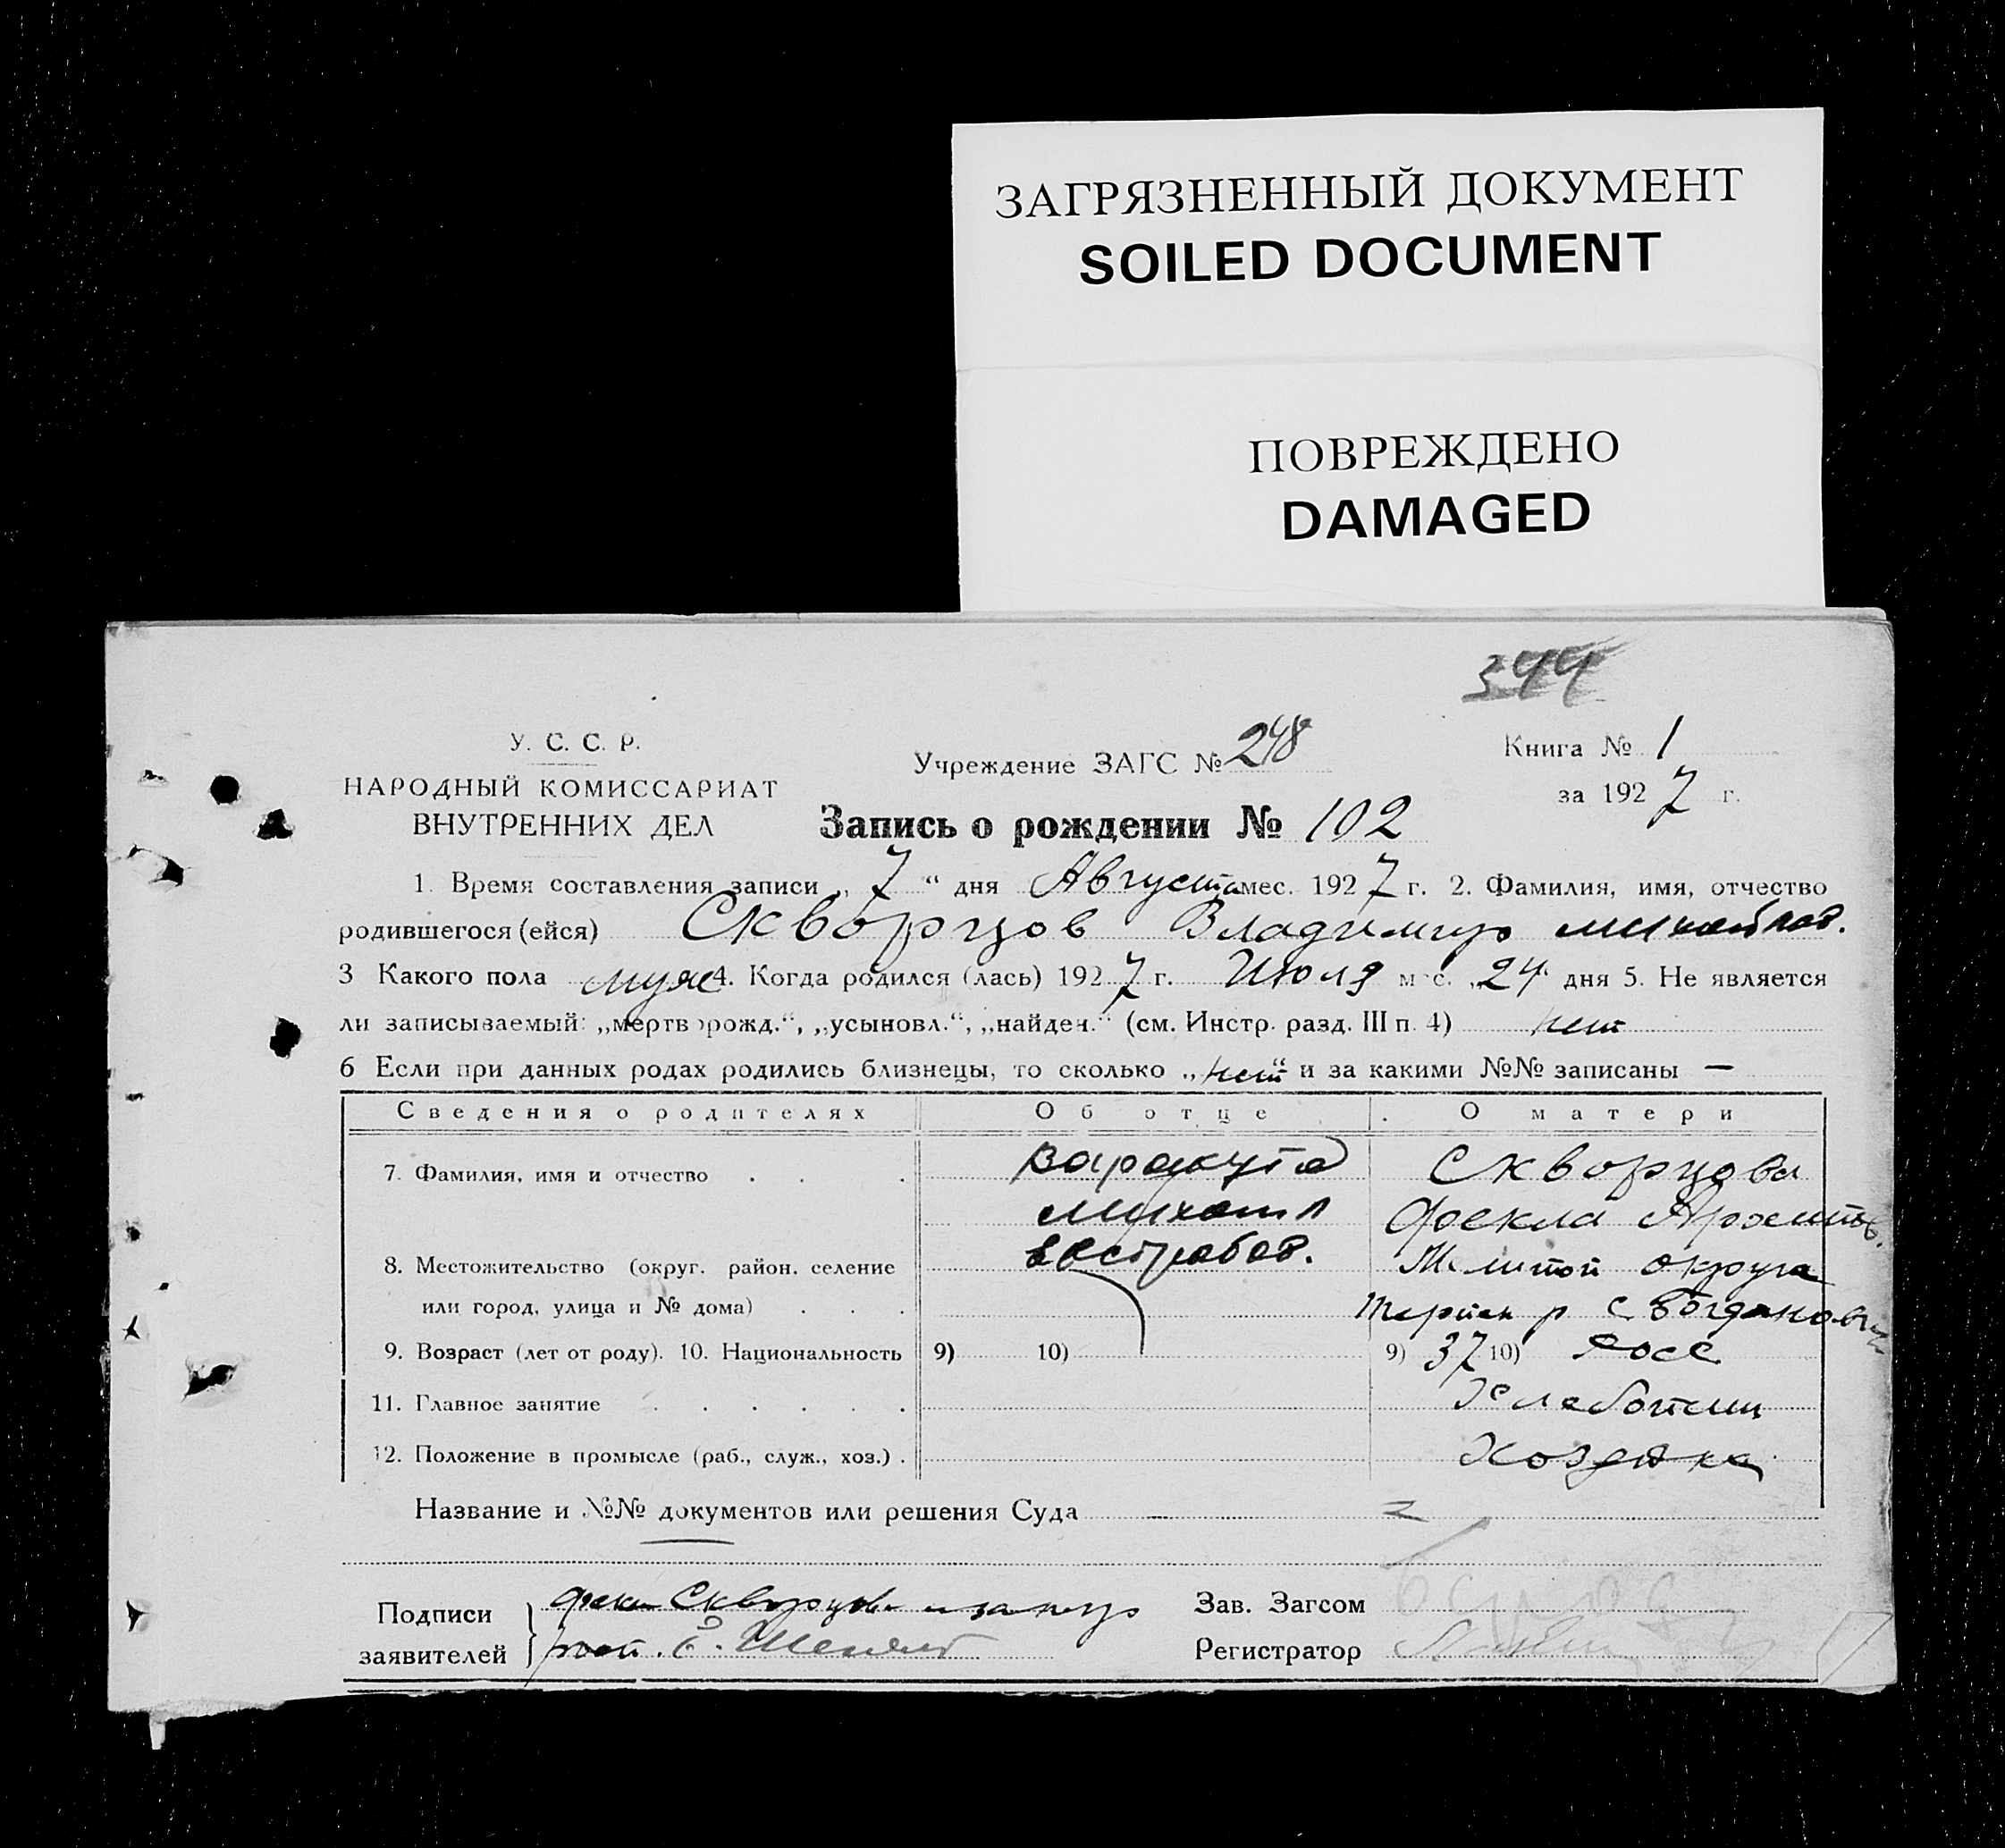 ЗАГРЯЗНЕННЫЙ ДОКУМЕНТ
SOILED DOCUMENT
ПОВРЕЖДЕНО
DAMAGED
344
У. С. С. Р.
НАРОДНЫЙ КОМИССАРИАТ
ВНУТРЕННИХ ДЕЛ
Учреждение ЗАГС № 248
Книга № 1
за 1927 г.
Запись о рождении № 102
1. Время составления записи „ 7 “ дня Августа мес. 1927 г. 2. Фамилия, имя, отчество
родившегося (ейся) Скворцов Владимир михайлов.
3 Какого пола муж 4. Когда родился (лась) 1927 г. Июля мес. „24“ дня 5. Не является
ли записываемый: „мертворожд.“, „усыновл.“, „найден.“ (см. Инстр. разд. III п. 4) нет
6 Если при данных родах родились близнецы, то сколько „нет“ и за какими №№ записаны —
Сведения о родителях Об отце О матери
7. Фамилия, имя и отчество Скворцова
михаил Фекла
8. Местожительство (округ. район. селение Мелитоп округа
или город, улица и № дома) р с Богдановка
9. Возраст (лет от роду). 10. Национальность 9) 10) 9) 37 10)
11. Главное занятие
12. Положение в промысле (раб., служ., хоз.) Хозяйка
Название и №№ документов или решения Суда —
Подписи
заявителей
Скворцова
Зав. Загсом
Регистратор